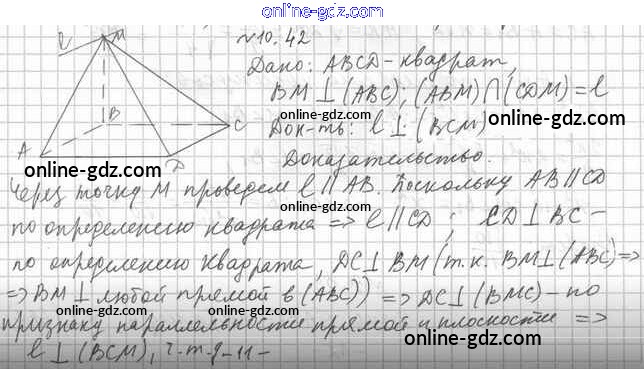 online-gdz.com
№10.42
Дано: ABCD-квадрат,
BM⊥(ABC); (ABM)∩(CDM)=l
online-gdz.com
Док-ть: l⊥(BCM)
online-gdz.com
Доказательство.
M
B
C
A
D
online-gdz.com
Через точку M проведем l∥AB. Поскольку AB∥CD
online-gdz.com
по определению квадрата => l∥CD; CD⊥BC-
online-gdz.com
по определению квадрата, DC⊥BM (т.к. BM⊥(ABC)=>
online-gdz.com
=> BM⊥ любой прямой в (ABC)) => DC⊥(BMC)-по
online-gdz.com
признаку параллельности прямой и плоскости =>
l⊥(BCM), ч.т.д.
online-gdz.com